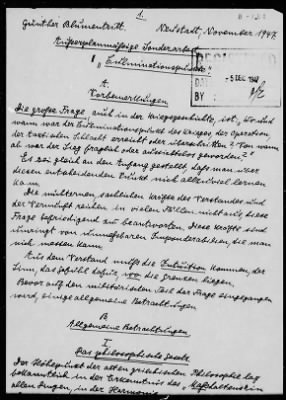 1.
B-12
Günther Blumentritt. Neustadt, November 1947.
Außerplanmäßige Sonderarbeit
" Culminationspunkte "
5 DEC 1947
BY
A.
Vorbemerkungen
Die große Frage, auch in der Kriegsgeschichte, ist, wo und
wann war der Culminationspunkt des Krieges, der Operation,
der taktischen Schlacht erreicht oder überschritten? Von wann
ab war der Sieg fraglich oder aussichtslos geworden?
Es sei gleich an den Anfang gestellt, daß man über
diesen entscheidenden Punkt nich allzuviel lernen
kann.
Die nüchternen, sachlichen Kräfte des Verstandes und
der Vernunft reichen in vielen Fällen nicht aus, diese
Frage befriedigend zu beantworten. Diese Kräfte sind
umringt von unmeßbaren Imponderabilien, die man
nich messen kann.
Aus dem Verstand muß die Intuition kommen, der
Sinn, das Gefühl dafür, wo die Grenzen liegen.
Bevor auf den militärischen Teil der Frage eingegangen
wird, einige allgemeine Betrachtungen.
B.
Allgemeine Betrachtungen
I.
Das philosophische
Der Höhepunkt der alten griechischen Philosophie lag
bekanntlich in der Erkenntnis des "Maßhaltens in
allen Dingen, in der Harmonie